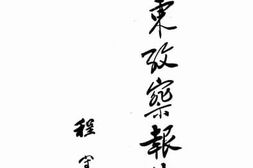 東攷察報
程